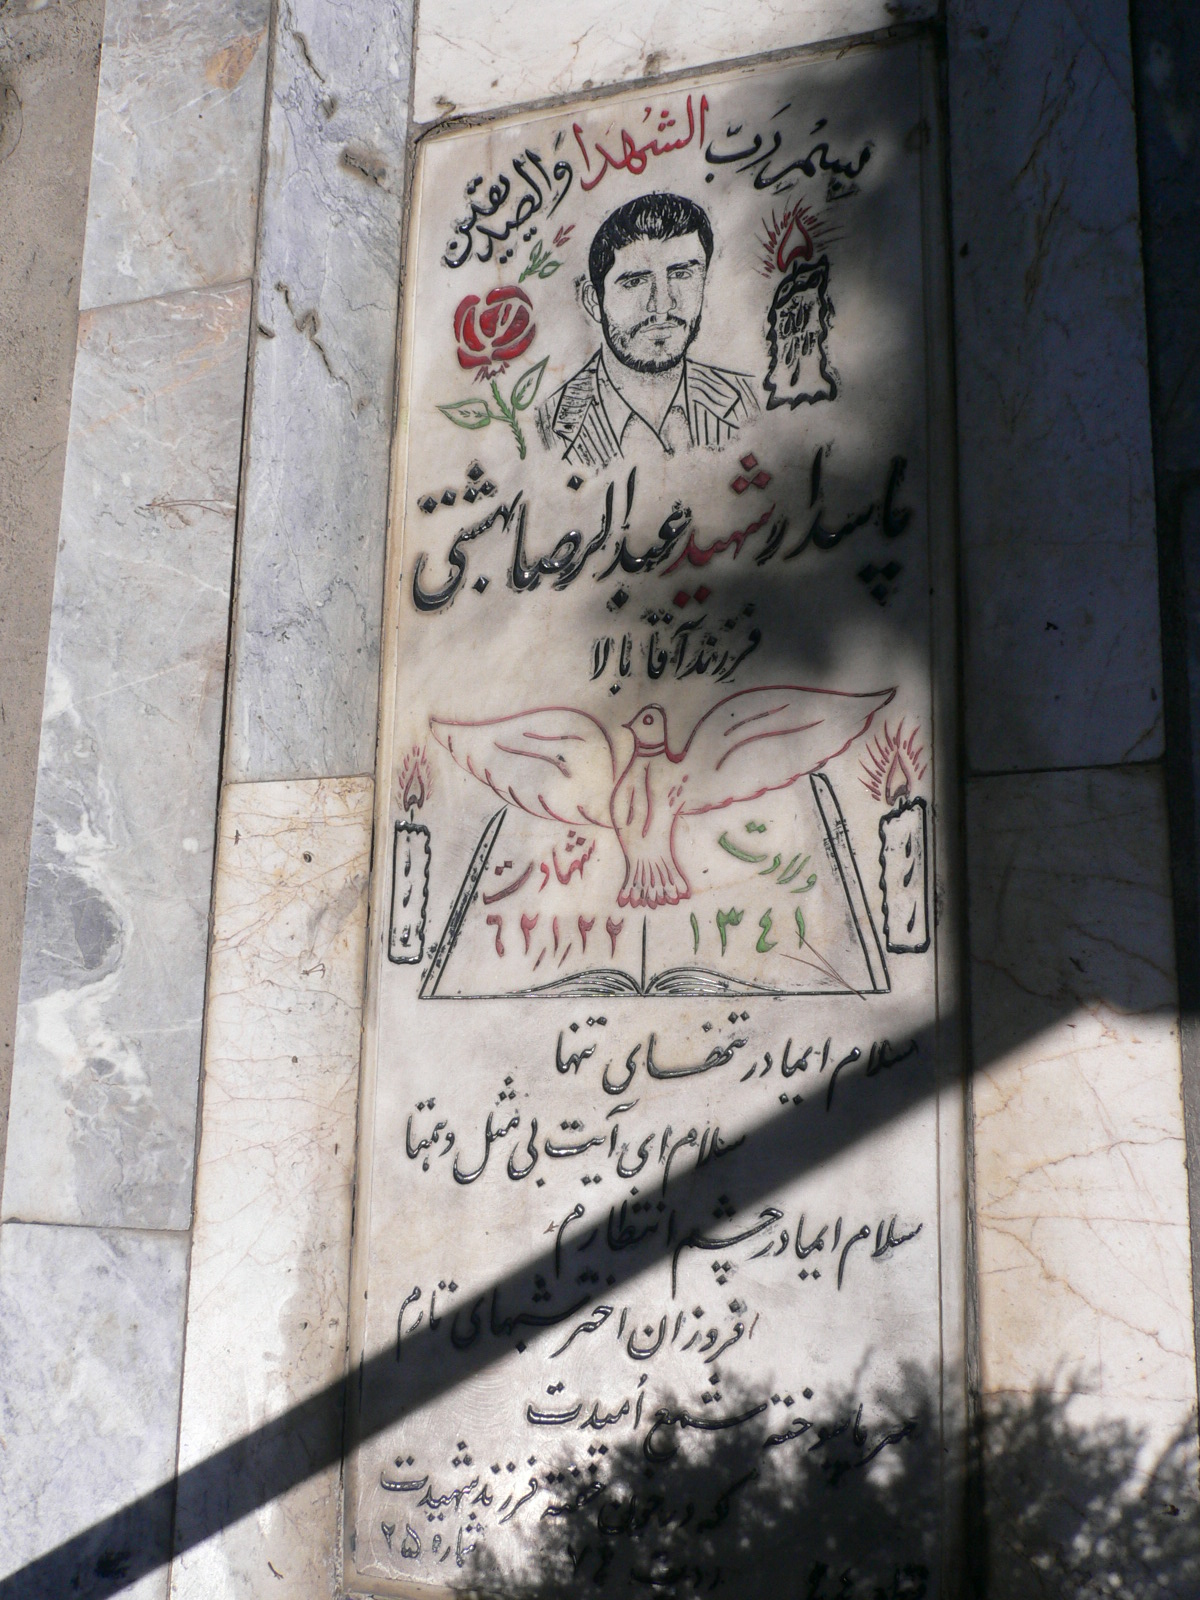 بسم رب الشهدا والصدیقین
پاسدار شهید عبدالرضا بهشتی
فرزند آقا بالا
ولادت
شهادت
۱۳٤۱
٦۲/۱/۲۲
سلام ایمادر تنهای تنها
سلام ای آیت بی مثل وهمتا
سلام ایمادر چشم انتظارم
فروزان اختر شبهای تارم
سوخته شمع اُمیدت
که در خون خفته فرزند شهیدت
شماره ۲۵